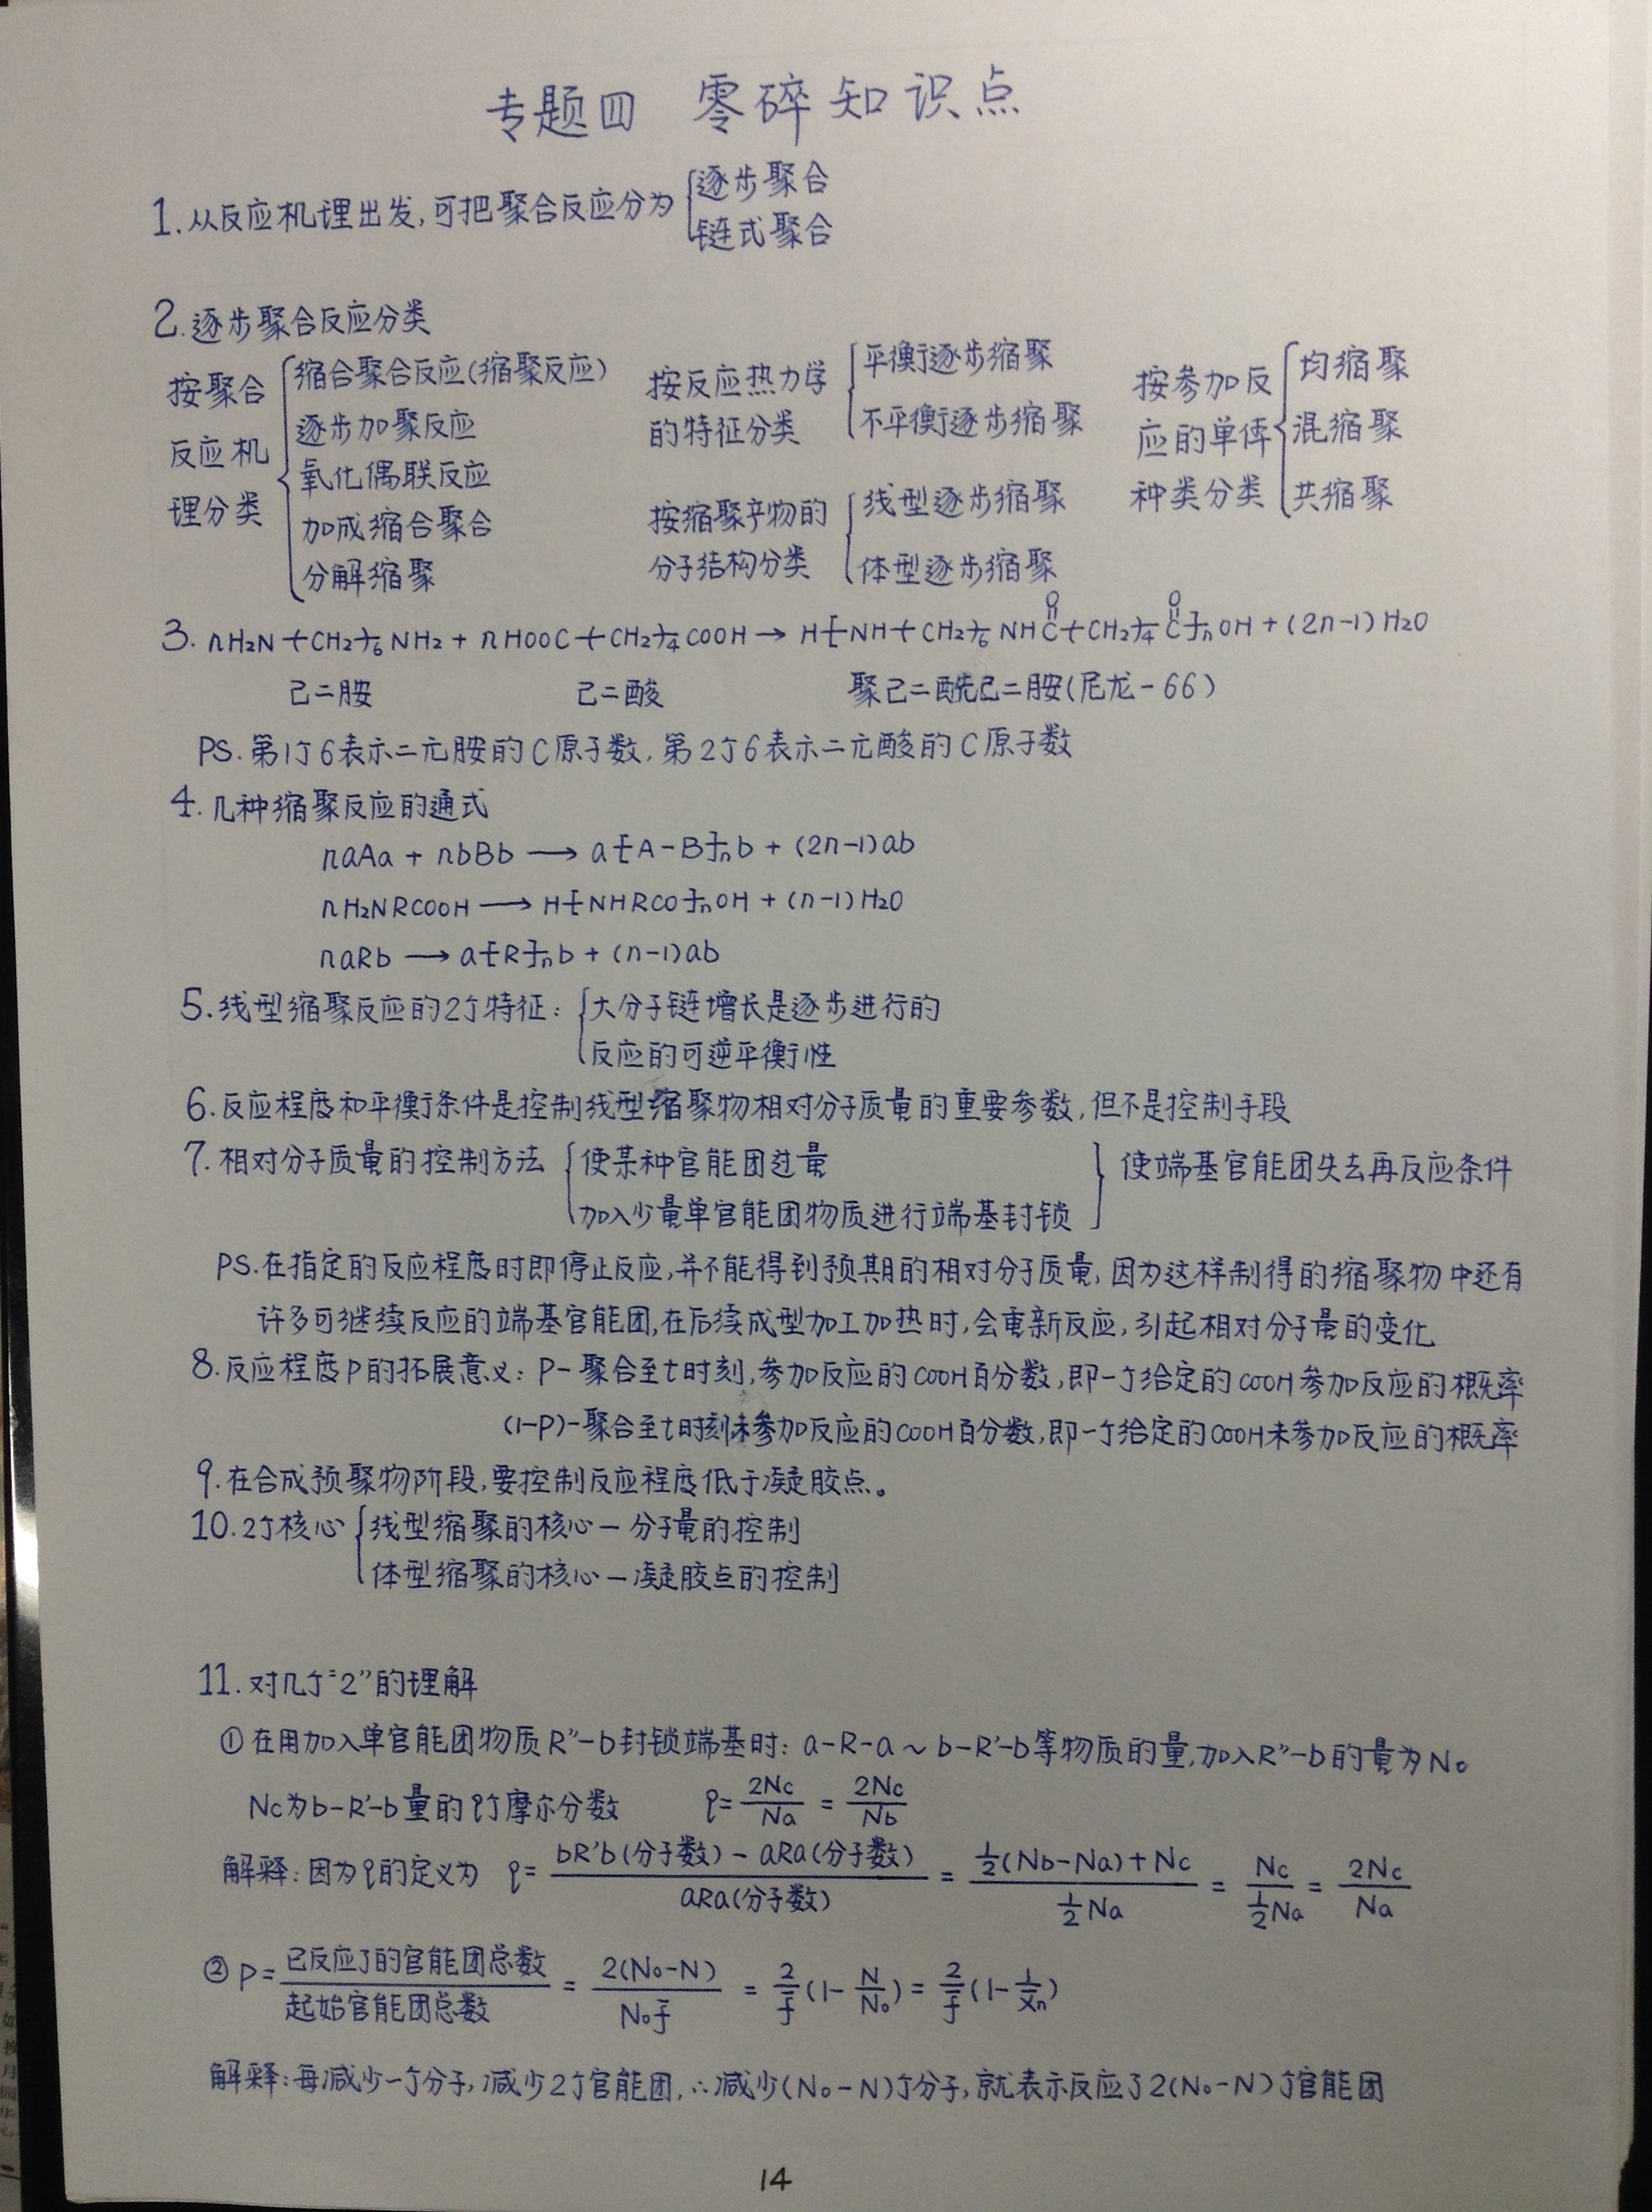 专题四 零碎知识点
1.从反应机理出发,可把聚合反应分为{逐步聚合
链式聚合
2.逐步聚合反应分类
按聚合反应机理分类{缩合聚合反应(缩聚反应)
逐步加聚反应
氧化偶联反应
加成缩合聚合
分解缩聚
按反应热力学的特征分类{平衡逐步缩聚
不平衡逐步缩聚
按缩聚产物的分子结构分类{线型逐步缩聚
体型逐步缩聚
按参加反应的单体种类分类{均缩聚
混缩聚
共缩聚
3. nH₂N+CH₂+₆NH₂ + nHOOC+CH₂+₄COOH → H[NH+CH₂+₆NHC(=O)+CH₂+₄C(=O)]ₙOH + (2n-1)H₂O
己二胺 己二酸 聚己二酰己二胺(尼龙-66)
PS.第1个6表示二元胺的C原子数,第2个6表示二元酸的C原子数
4.几种缩聚反应的通式
naAa + nbBb → a[A-B]ₙb + (2n-1)ab
nH₂NRCOOH → H[NHRCO]ₙOH + (n-1)H₂O
naRb → a[R]ₙb + (n-1)ab
5.线型缩聚反应的2个特征:{大分子链增长是逐步进行的
反应的可逆平衡性
6.反应程度和平衡条件是控制线型缩聚物相对分子质量的重要参数,但不是控制手段
7.相对分子质量的控制方法{使某种官能团过量
加入少量单官能团物质进行端基封锁} 使端基官能团失去再反应条件
PS.在指定的反应程度时即停止反应,并不能得到预期的相对分子质量,因为这样制得的缩聚物中还有
许多可继续反应的端基官能团,在后续成型加工加热时,会重新反应,引起相对分子量的变化
8.反应程度P的拓展意义:P-聚合至t时刻,参加反应的COOH百分数,即一个给定的COOH参加反应的概率
(1-P)-聚合至t时刻未参加反应的COOH百分数,即一个给定的COOH未参加反应的概率
9.在合成预聚物阶段,要控制反应程度低于凝胶点。
10.2个核心{线型缩聚的核心-分子量的控制
体型缩聚的核心-凝胶点的控制
11.对几个"2"的理解
①在用加入单官能团物质R″-b封锁端基时:a-R-a~b-R′-b等物质的量,加入R″-b的量为Nc
Nc为b-R′-b量的q个摩尔分数 q=2Nc/Na=2Nc/Nb
解释:因为q的定义为 q=[bR′b(分子数)-aRa(分子数)]/aRa(分子数)=[½(Nb-Na)+Nc]/½Na=Nc/½Na=2Nc/Na
②P=已反应了的官能团总数/起始官能团总数=2(N₀-N)/N₀f̄=2/f̄(1-N/N₀)=2/f̄(1-1/X̄n)
解释:每减少一个分子,减少2个官能团,∴减少(N₀-N)个分子,就表示反应了2(N₀-N)个官能团
14